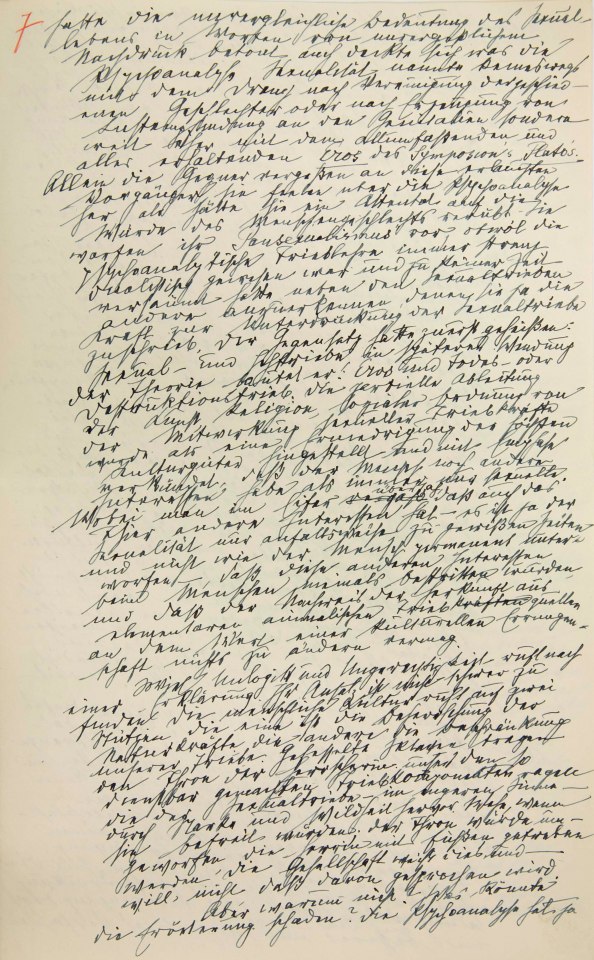 7 hatte die unvergleichliche Bedeutung des Sexual-
lebens in Worten von unvergeßlichem
Nachdruck betont auch deckte sich was die
Psychoanalyse Sexualität nannte keineswegs
mit dem Drang nach Vereinigung der geschied-
enen Geschlechter oder nach Erzeugung von
Lustempfindung an den Genitalien sondern
weit eher mit dem allumfassenden und
alles erhaltenden Eros des Symposion's Platos.
Allein die Gegner vergaßen an diese erlauchten
Vorgänger sie fielen über die Psychoanalyse
her als hätte sie ein Attentat auf die
Würde des Menschengeschlechts verübt. Sie
warfen ihr Pansexualismus vor obwol die
psychoanalytische Trieblehre immer streng
dualistisch gewesen war und zu keiner Zeit
versäumt hatte neben den Sexualtrieben
andere anzuerkennen, denen sie ja die
Kraft zur Unterdrückung der Sexualtriebe
zuschrieb. Der Gegensatz hatte zuerst geheißen:
Sexual- und Ichtriebe in späterer Wendung
der Theorie lautet er: Eros und Todes- oder
Destruktionstrieb. Die partielle Ableitung
der Kunst Religion sozialer Ordnung von
der Mitwirkung sexueller Triebkräfte
wurde als eine Erniedrigung der höchsten
Kulturgüter hingestellt und mit Emphase
verkündet, daß der Mensch noch andere
Interessen habe als immer nur sexuelle
Wobei man im Eifer übersah daß auch das
Thier andere Interessen hat – es ist ja der
Sexualität nur anfallsweise zu gewißen Zeiten
und nicht wie der Mensch permanent unter-
worfen – daß diese anderen Interessen
beim Menschen niemals bestritten wurden,
und daß der Nachweis der Herkunft aus
elementaren animalischen Triebquellen
an dem Wert einer kulturellen Errungen-
schaft nichts zu ändern vermag
Soviel Unlogik und Ungerechtigkeit ruft nach
einer Erklärung Ihr Ansatz ist nicht schwer zu
finden Die menschliche Kultur ruht auf zwei
Stützen die eine ist die Beherrschung der
Naturkräfte die andere die Beschränkung
unserer Triebe. Gefesselte Sklaven tragen
den Thron der Herrscherin. Unter den so
dienstbar gemachten Triebkomponenten ragen
die der Sexualtriebe – im engeren Sinne –
durch Stärke und Wildheit hervor Wehe, wenn
sie befreit würden. der Thron würde um-
geworfen die Herrin mit Füßen getreten
werden, die Gesellschaft weiß dies und –
will nicht daß davon gesprochen wird.
Aber warum nicht? Was könnte
die Erörterung schaden? Die Psychoanalyse hat ja